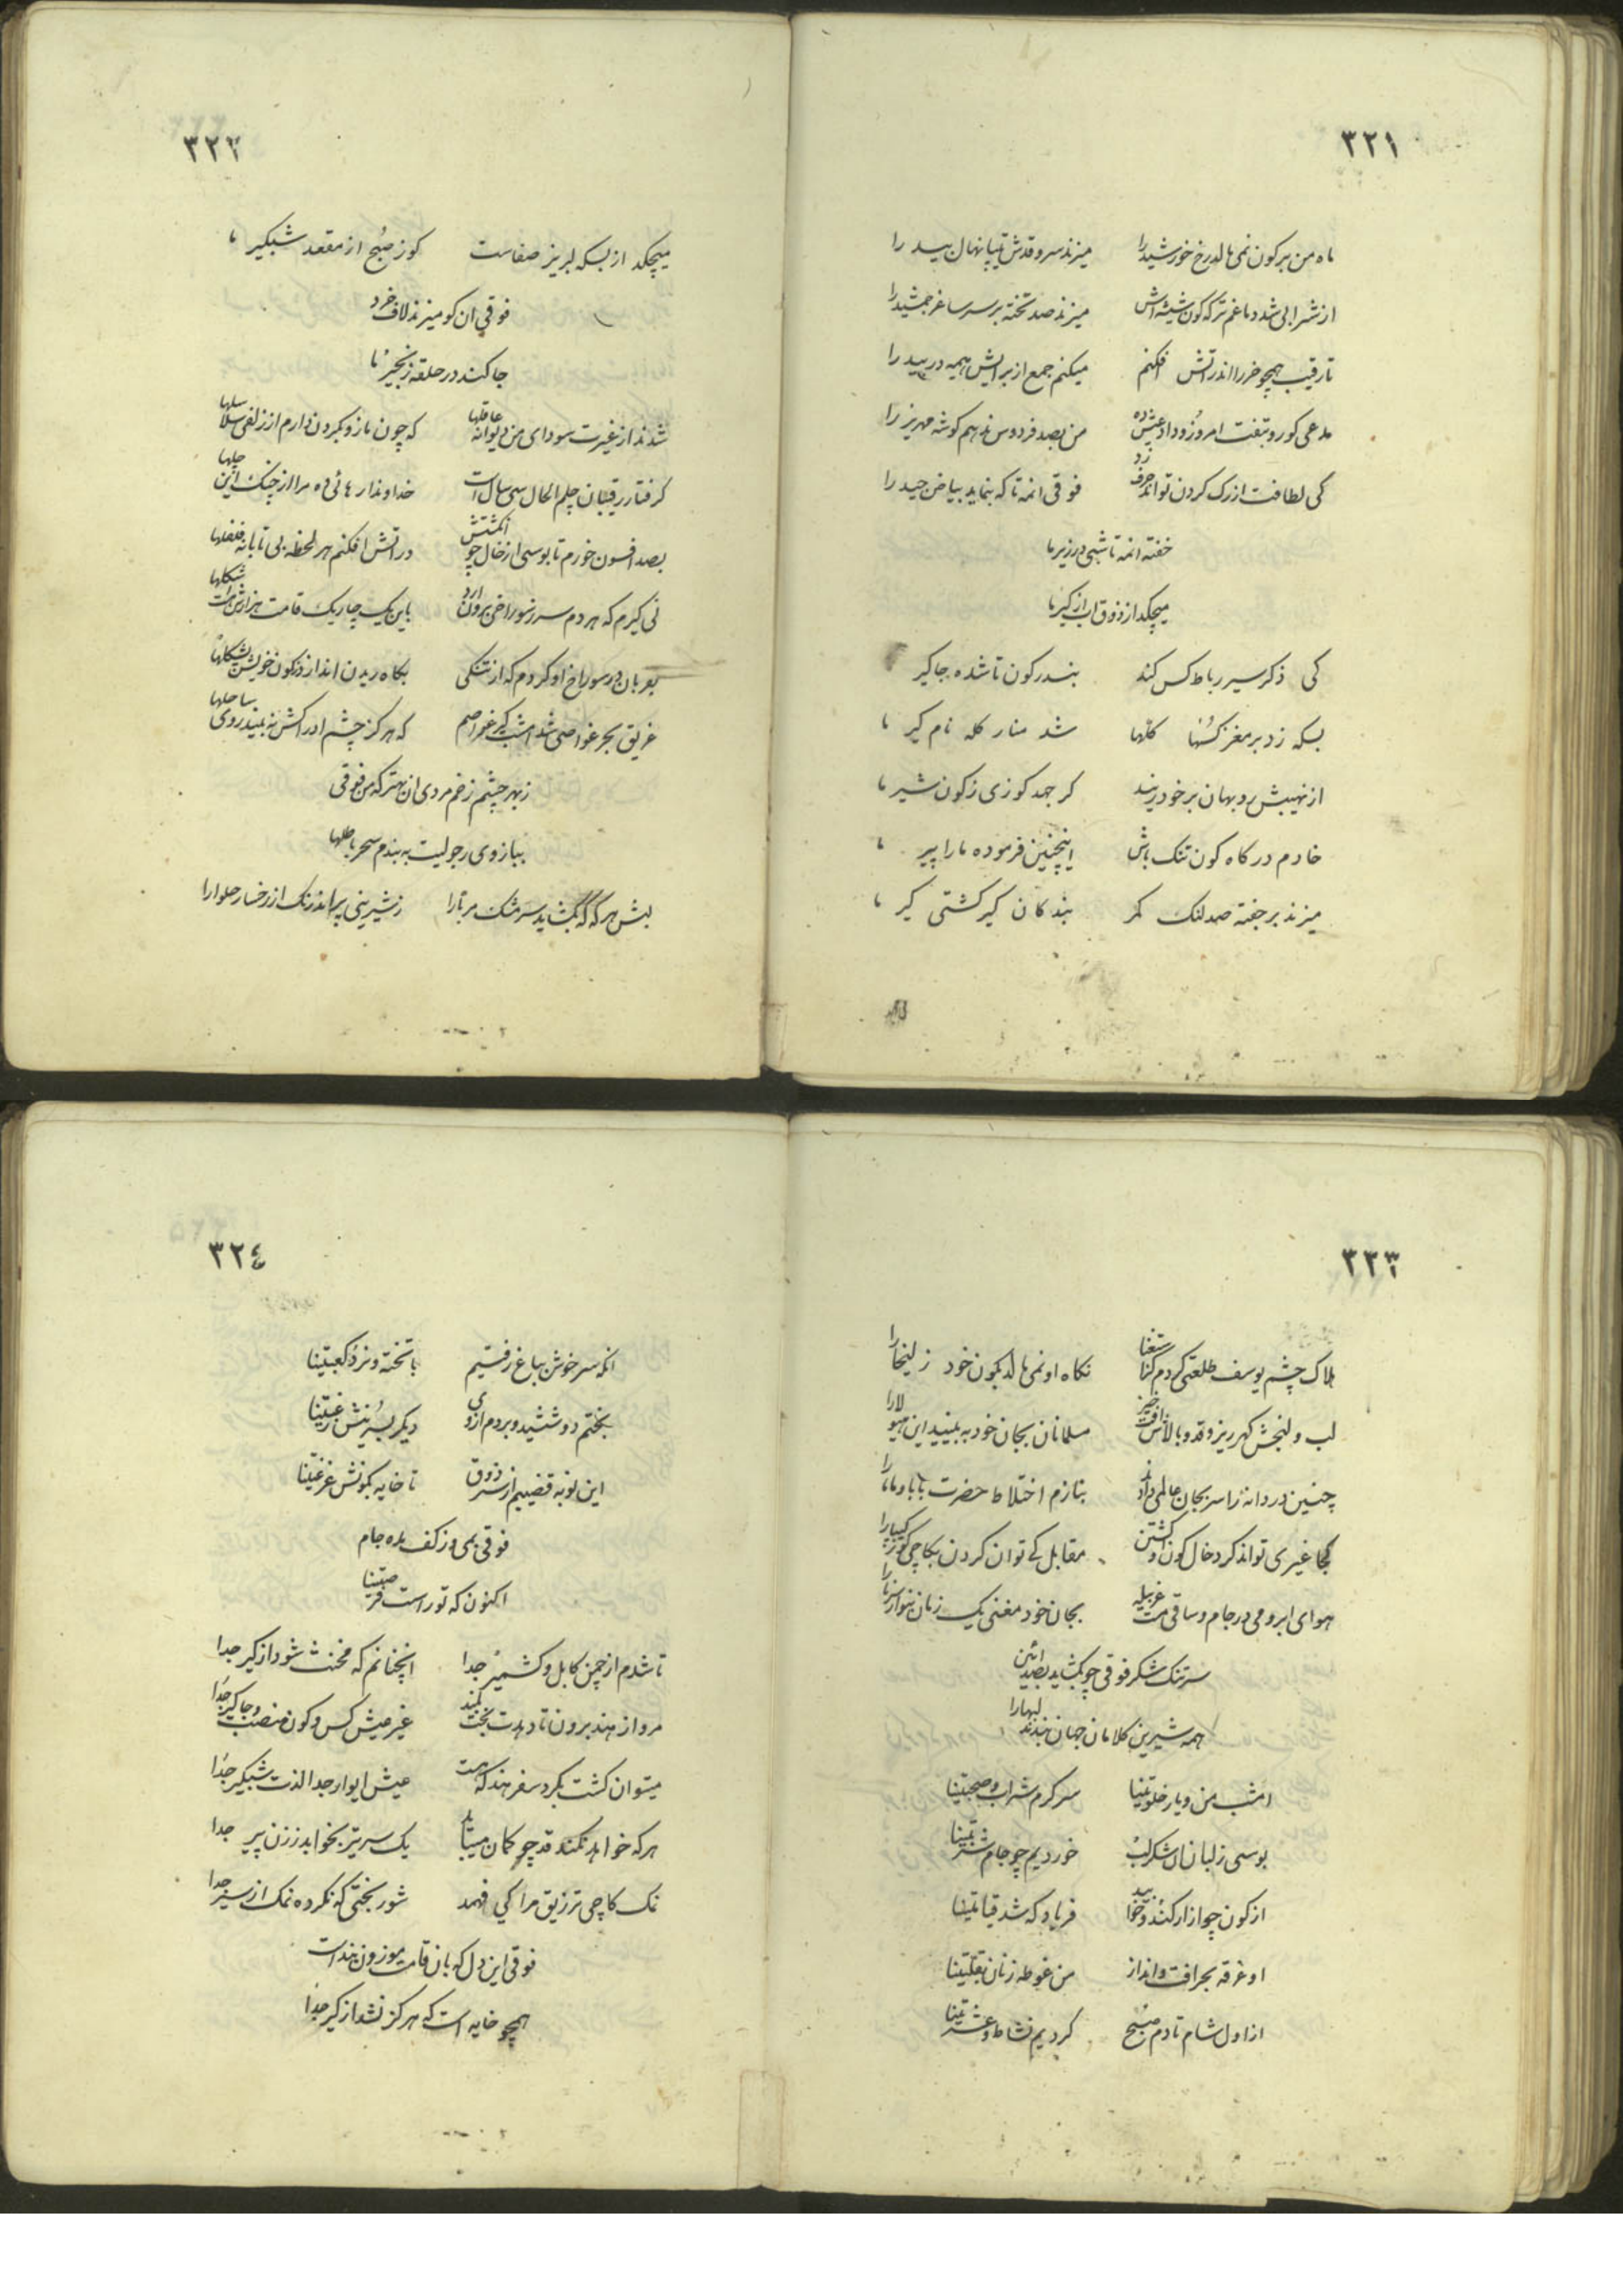 ۳۲۱
ماه من بر کون نمی‌مالد رخ خورشید را میزند سرو قدش تیپا نهال بید را
از شرابی شد دماغم تر که کون شیشه‌اش میزند صد تخته بر سر ساغر جمشید را
تا رقیب همچو خر را اندر آتش افکنم میکنم جمع از برایش هیمه در بید را
مدعی کو رو بتفت امروز و داد عیش ده من بصد فردوس ندهم کوشه مهریز را
کی لطافت از رک کردن تواند حرف زد فوقی انمه تا که بنماید بیاض جید را
خفته انمه تا شبی در زیر ما
میچکد از ذوق اب از کیر ما
کی ذکر سیر رباط کس کند بندر کون تا شده جاکیر
بسکه زد بر مغز کسها کلها شد منار کله نام کیر ما
از نهیبش روبهان بر خود ریند کر جهد کوزی ز کون شیر ما
خادم درکاه کون تنک باش اینچنین فرموده ما را پیر ما
میزند بر جفته صد لنک کمر بندکان کیر کشتی کیر ما
۳۲۲
میچکد از بسکه لبریز صفاست کوز صبح از مقعد شبکیر ما
فوقی ان کو میزند لاف خرد
جا کند در حلقه زنجیر ما
شدند از غیرت سودای من دیوانه عاقلها که چون مازو بکردن دارم از زلفی سلاسلها
کرفتار رقیبان چلم الحال سی سال است خداوندا رهائی ده مرا از چنک این چلها
بصد افسون خورم تا بوسی از خال چو انکشتش در اتش افکنم هر لحظه بی تابانه فلفلها
نی کیرم که هر دم سر ز سوراخی برون ارد باین یک چاریک قامت هزارش هست شکلها
بعریان در سوراخ او کردم که از تنکی بکاه ریدن اندازد ز کون خویش بشکلها
غریق بحر غواصی شد امشب کیر غواصم که هرکز چشم ادراکش نه بیند روی ساحلها
ز بهر چشم زخم مردی ان بهتر که من فوقی
ببازوی رجولیت به بندم سحر باطلها
لبش هرکه که بکشاید سر مشک مربا را ز شیرینی پراند رنک از رخسار حلوا را
۳۲۳
هلاک چشم یوسف طلعتی کردم کز استغنا نکاه او نمی‌مالد بکون خود زلیخا را
لب و لنجش کهر ریز و قد و بالاش افت خیز مسلمانان بجان خود به بینید این هیولا را
چنین دردانه را سر بجان عالمی داد بنازم اختلاط حضرت بابا و ماما را
کجا غیری تواند کرد خال کون او کشتن مقابل کی توان کردن بکاچی کوز کیپا را
هوای ابر و می در جام و ساقی مست غربیله بجان خود مغنی یک زمان بنواز سرنا را
سر تنک شکر فوقی چو بکشاید بصد ائین
همه شیرین کلامان جهان بندند لبها را
امشب من و یار خلوتینا سرکرم شراب و صحبتینا
بوسی ز لبان ان شکرلب خوردیم چو جام شربتینا
از کون چو ازار کند و خوابید فریاد که شد قیامتینا
او غرقه بحر افت و انداز من غوطه زنان بقلتینا
از اول شام تا دم صبح کردیم نشاط و عشرتینا
۳۲۴
انکه سر خوش بباغ رفتیم با تخته و نرد کعبتینا
بختم دو شش شید و بردم از وی دیکر بسرینش رغبتینا
این نوبه قضیبم از سر ذوق تا خایه بکونش غرغتینا
فوقی بمی و ز کف بده جام
اکنون که تو راست فرصتینا
تا شدم از چمن کابل و کشمیر جدا انچنانم که مخنث شود از کیر جدا
مرو از هند برون تا دهدت بخت بلند غیر عیش کس و کون منصب و جاکیر جدا
میتوان کشت بکرد سفر هند که هست عیش ایوار جدا لذت شبکیر جدا
هرکه خواهد نکند قد چو کمان میباید یک سر تیر بخوابد ز زن پیر جدا
نمک کاچی ترزیق مرا کی فهمد شوربختی که نکرده نمک از سیر جدا
فوقی این دل که بان قامت موزون بند است
همچو خایه است که هرکز نشد از کیر جدا